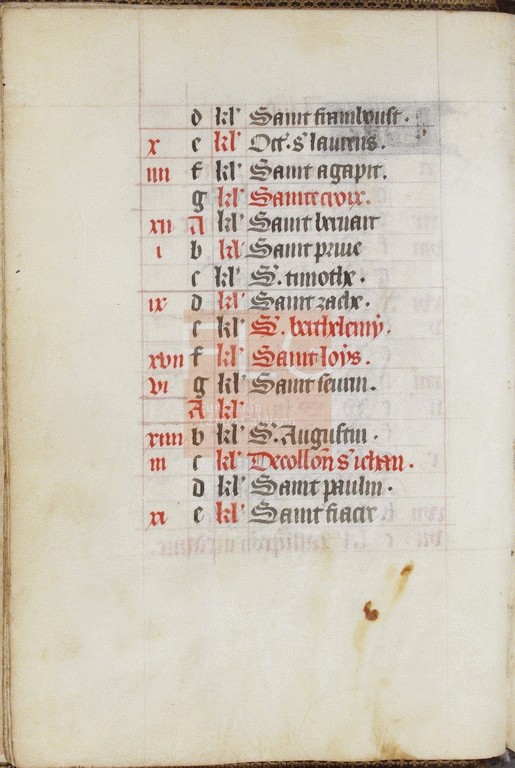 d kl' Saint framboust .
x e kl' Oct. s' laurens .
iiii f kl' Saint agapit .
g kl' Saincte croix .
xii A kl' Saint bernart
i b kl' Saint prive
c kl' S. timothe .
ix d kl' Saint zache .
e kl' S. berthelemy .
xvii f kl' Saint loys .
vi g kl' Saint seurin .
A kl'
xiiii b kl' S. Augustin .
iii c kl' Decollon s' iehan .
d kl' Saint paulin .
xi e kl' Saint fiacre